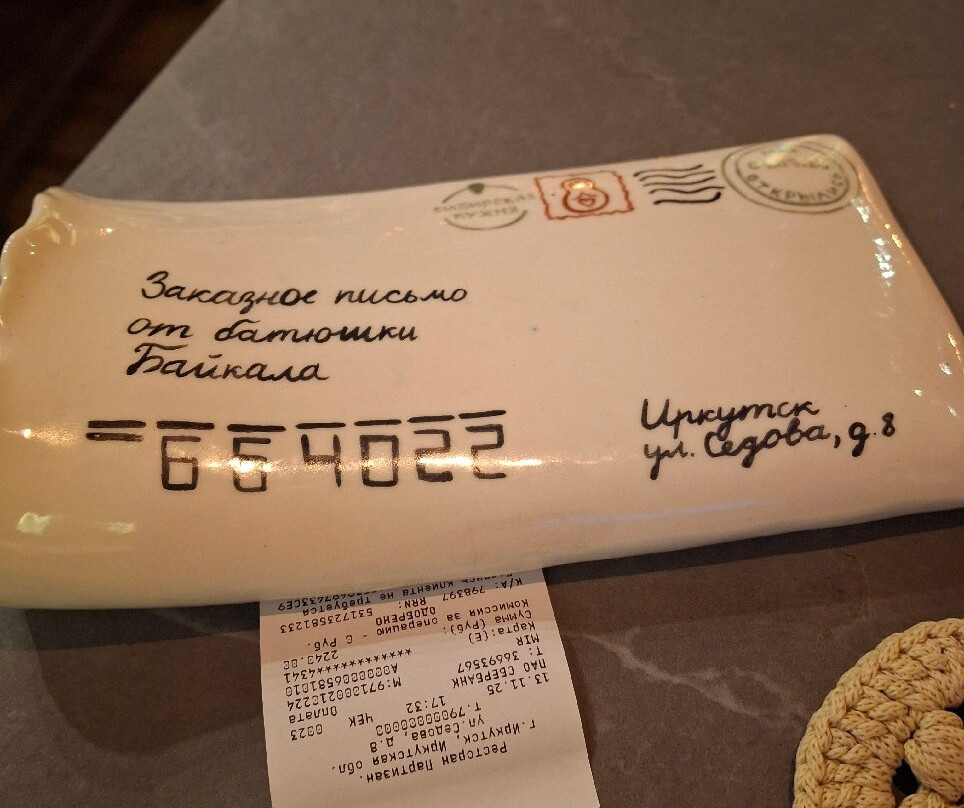 СИБИРСКАЯ
КУХНЯ
8
ОТКРЫЛИСЬ
Заказное письмо
от батюшки
Байкала
664022
Иркутск
ул. Седова, д.8
Ресторан Партизан.
г.Иркутск, Иркутская обл.
ул.Седова, д.8
т.79000000000
17:32 ЧЕК 0023
13.11.25
ПАО СБЕРБАНК Оплата
Т: 36693567 М:971000210224
MIR A0000006581010
Карта:(E) ************4341
Сумма (Руб): 2240.00
Комиссия за операцию - 0 Руб.
ОДОБРЕНО
К/А: 798397 RRN: 531723581233
клиента не требуется